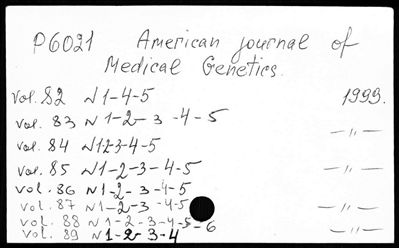 P6021 American journal of
Medical Genetics.
vol. 82 N1-4-5 1999.
vol. 83 N1-2-3-4-5 —〃—
vol. 84 N123-4-5
vol. 85 N1-2-3-4-5 —〃—
vol. 86 N1-2-3-4-5
vol. 87 N1-2-3-4-5 —〃—
vol. 88 N1-2-3-4-5-6
vol. 89 N1-2-3-4 —〃—